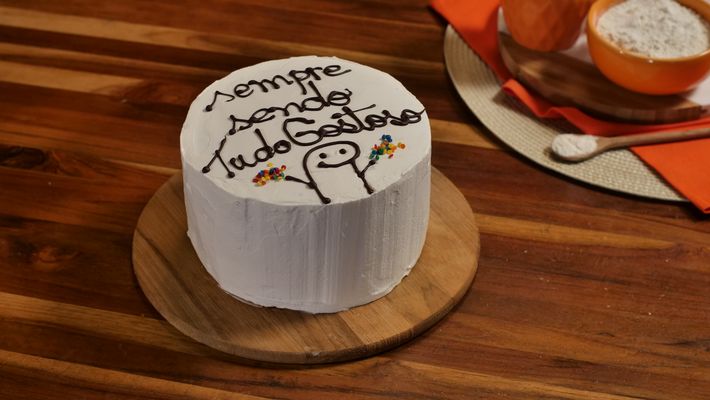 sempre
sendo
TudoGostoso